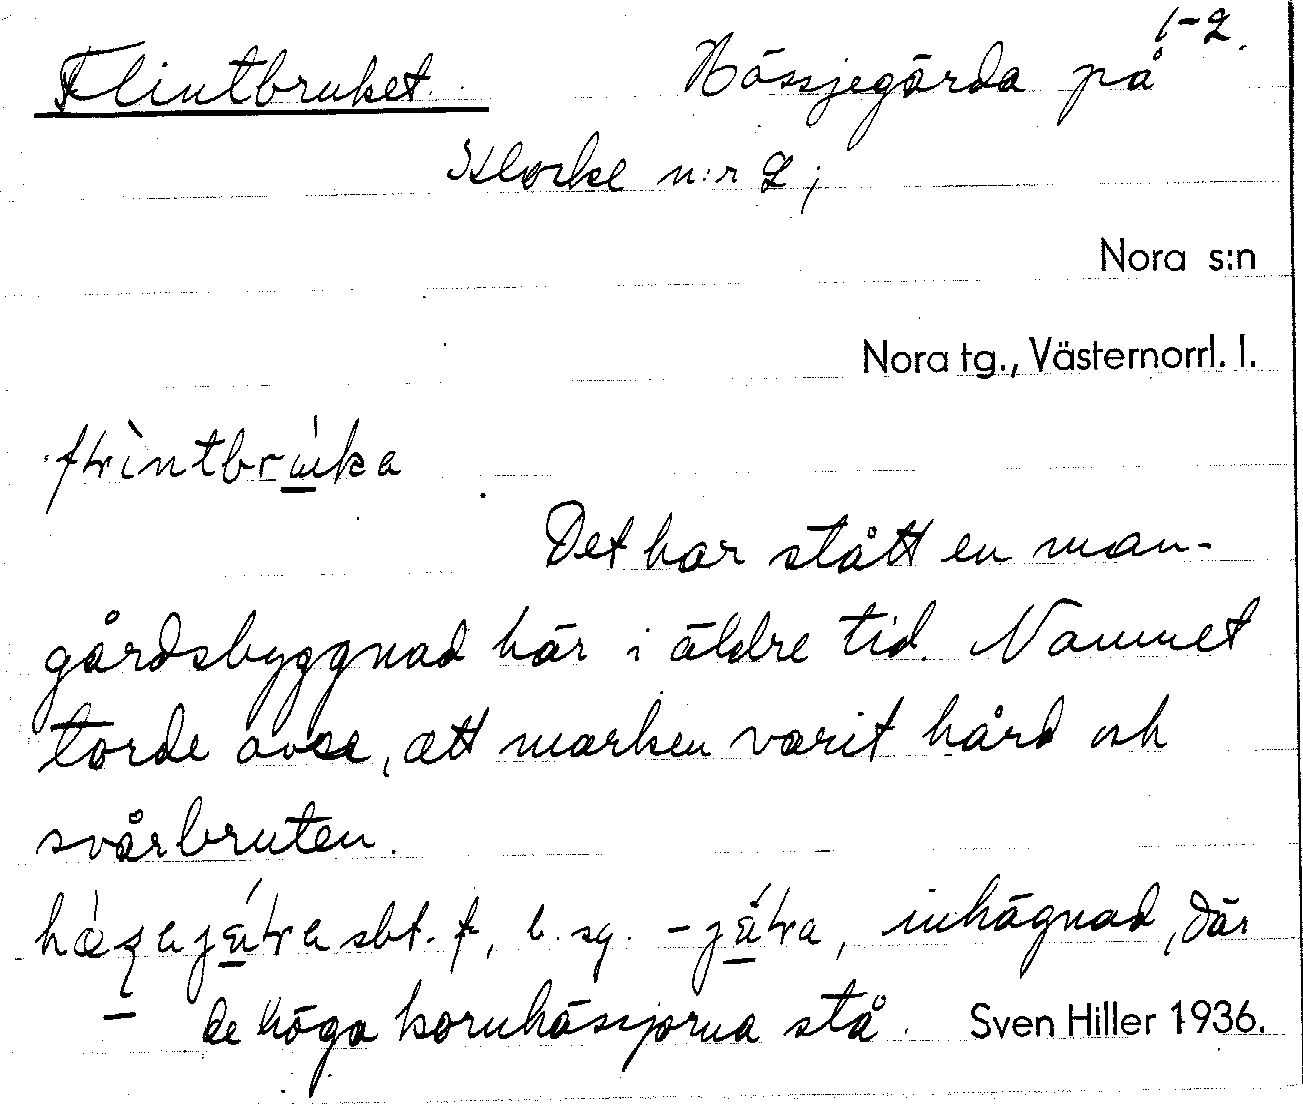 1-2.
Flintbruket. Hässjegärda på
Klocke n:r 2;
Nora s:n
Nora tg., Västernorrl. l.
Det har stått en man-
gårdsbyggnad här i äldre tid. Namnet
torde avse, att marken varit hård och
svårbruten.
sbt. f, b. sg. inhägnad, där
de höga kornhässjorna stå. Sven Hiller 1936.